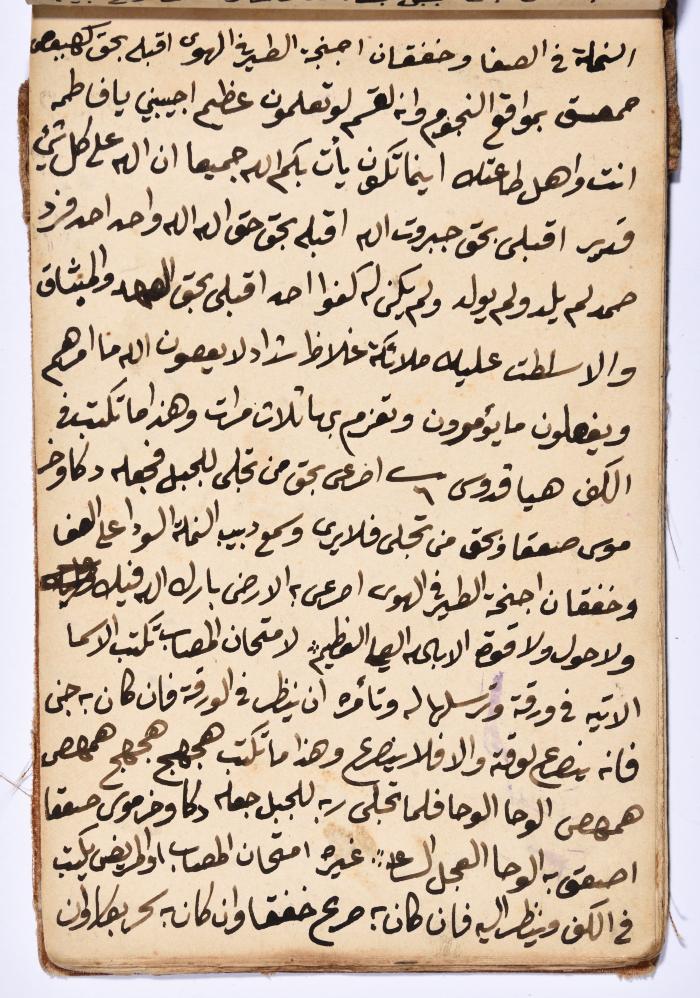 النملة في الصفا وخفقان اجنحة الطير في الهوى اقبله بحق كهيعص
حمعسق بمواقع النجوم وانه لقسم لو تعلمون عظيم اجيبني يا فاطمه
انت واهل طاعتك اينما تكون يأت بكم الله جميعا ان الله على كل شئ
قدير اقبلى بحق جبروت الله اقبله بحق حق الله الله واحد احد فرد
صمد لم يلد ولم يولد ولم يكن له كفوا احد اقبلى بحق العهد والميثاق
والا سلطت عليك ملائكة غلاظ شداد لا يعصون الله ما امرهم
ويفعلون ما يؤمرون وتعزم بها ثلاث مرات وهذا ما تكتب في
الكف هيا قدوس ٦ اصرعى بحق من تجلى للجبل فجعله دكا وخر
موسى صعقا وبحق من تجلى فلا يرى وسمع دبيب النملة السودا على الصفا
وخفقان اجنحة الطير في الهوى اصرعى به الارض بارك الله فيك
ولا حول ولا قوة الا بالله العلى العظيم لامتحان المصاب تكتب الاسما
الاتيه في ورقة وترسلها له وتأمره ان ينظر في الورقة فان كان به جنى
فانه ينصرع لوقته والا فلا ينصرع وهذا ما تكتب هجهج هجهج همهص
همهص الوحا الوحا فلما تجلى ربه للجبل جعله دكا وخر موسى صعقا
اصعق به الوحا العجل الساعة غيره امتحان المصاب او المريض يكتب
في الكف وينظر اليه فان كان به صريع خفقا وان كان به سحر بكا وان